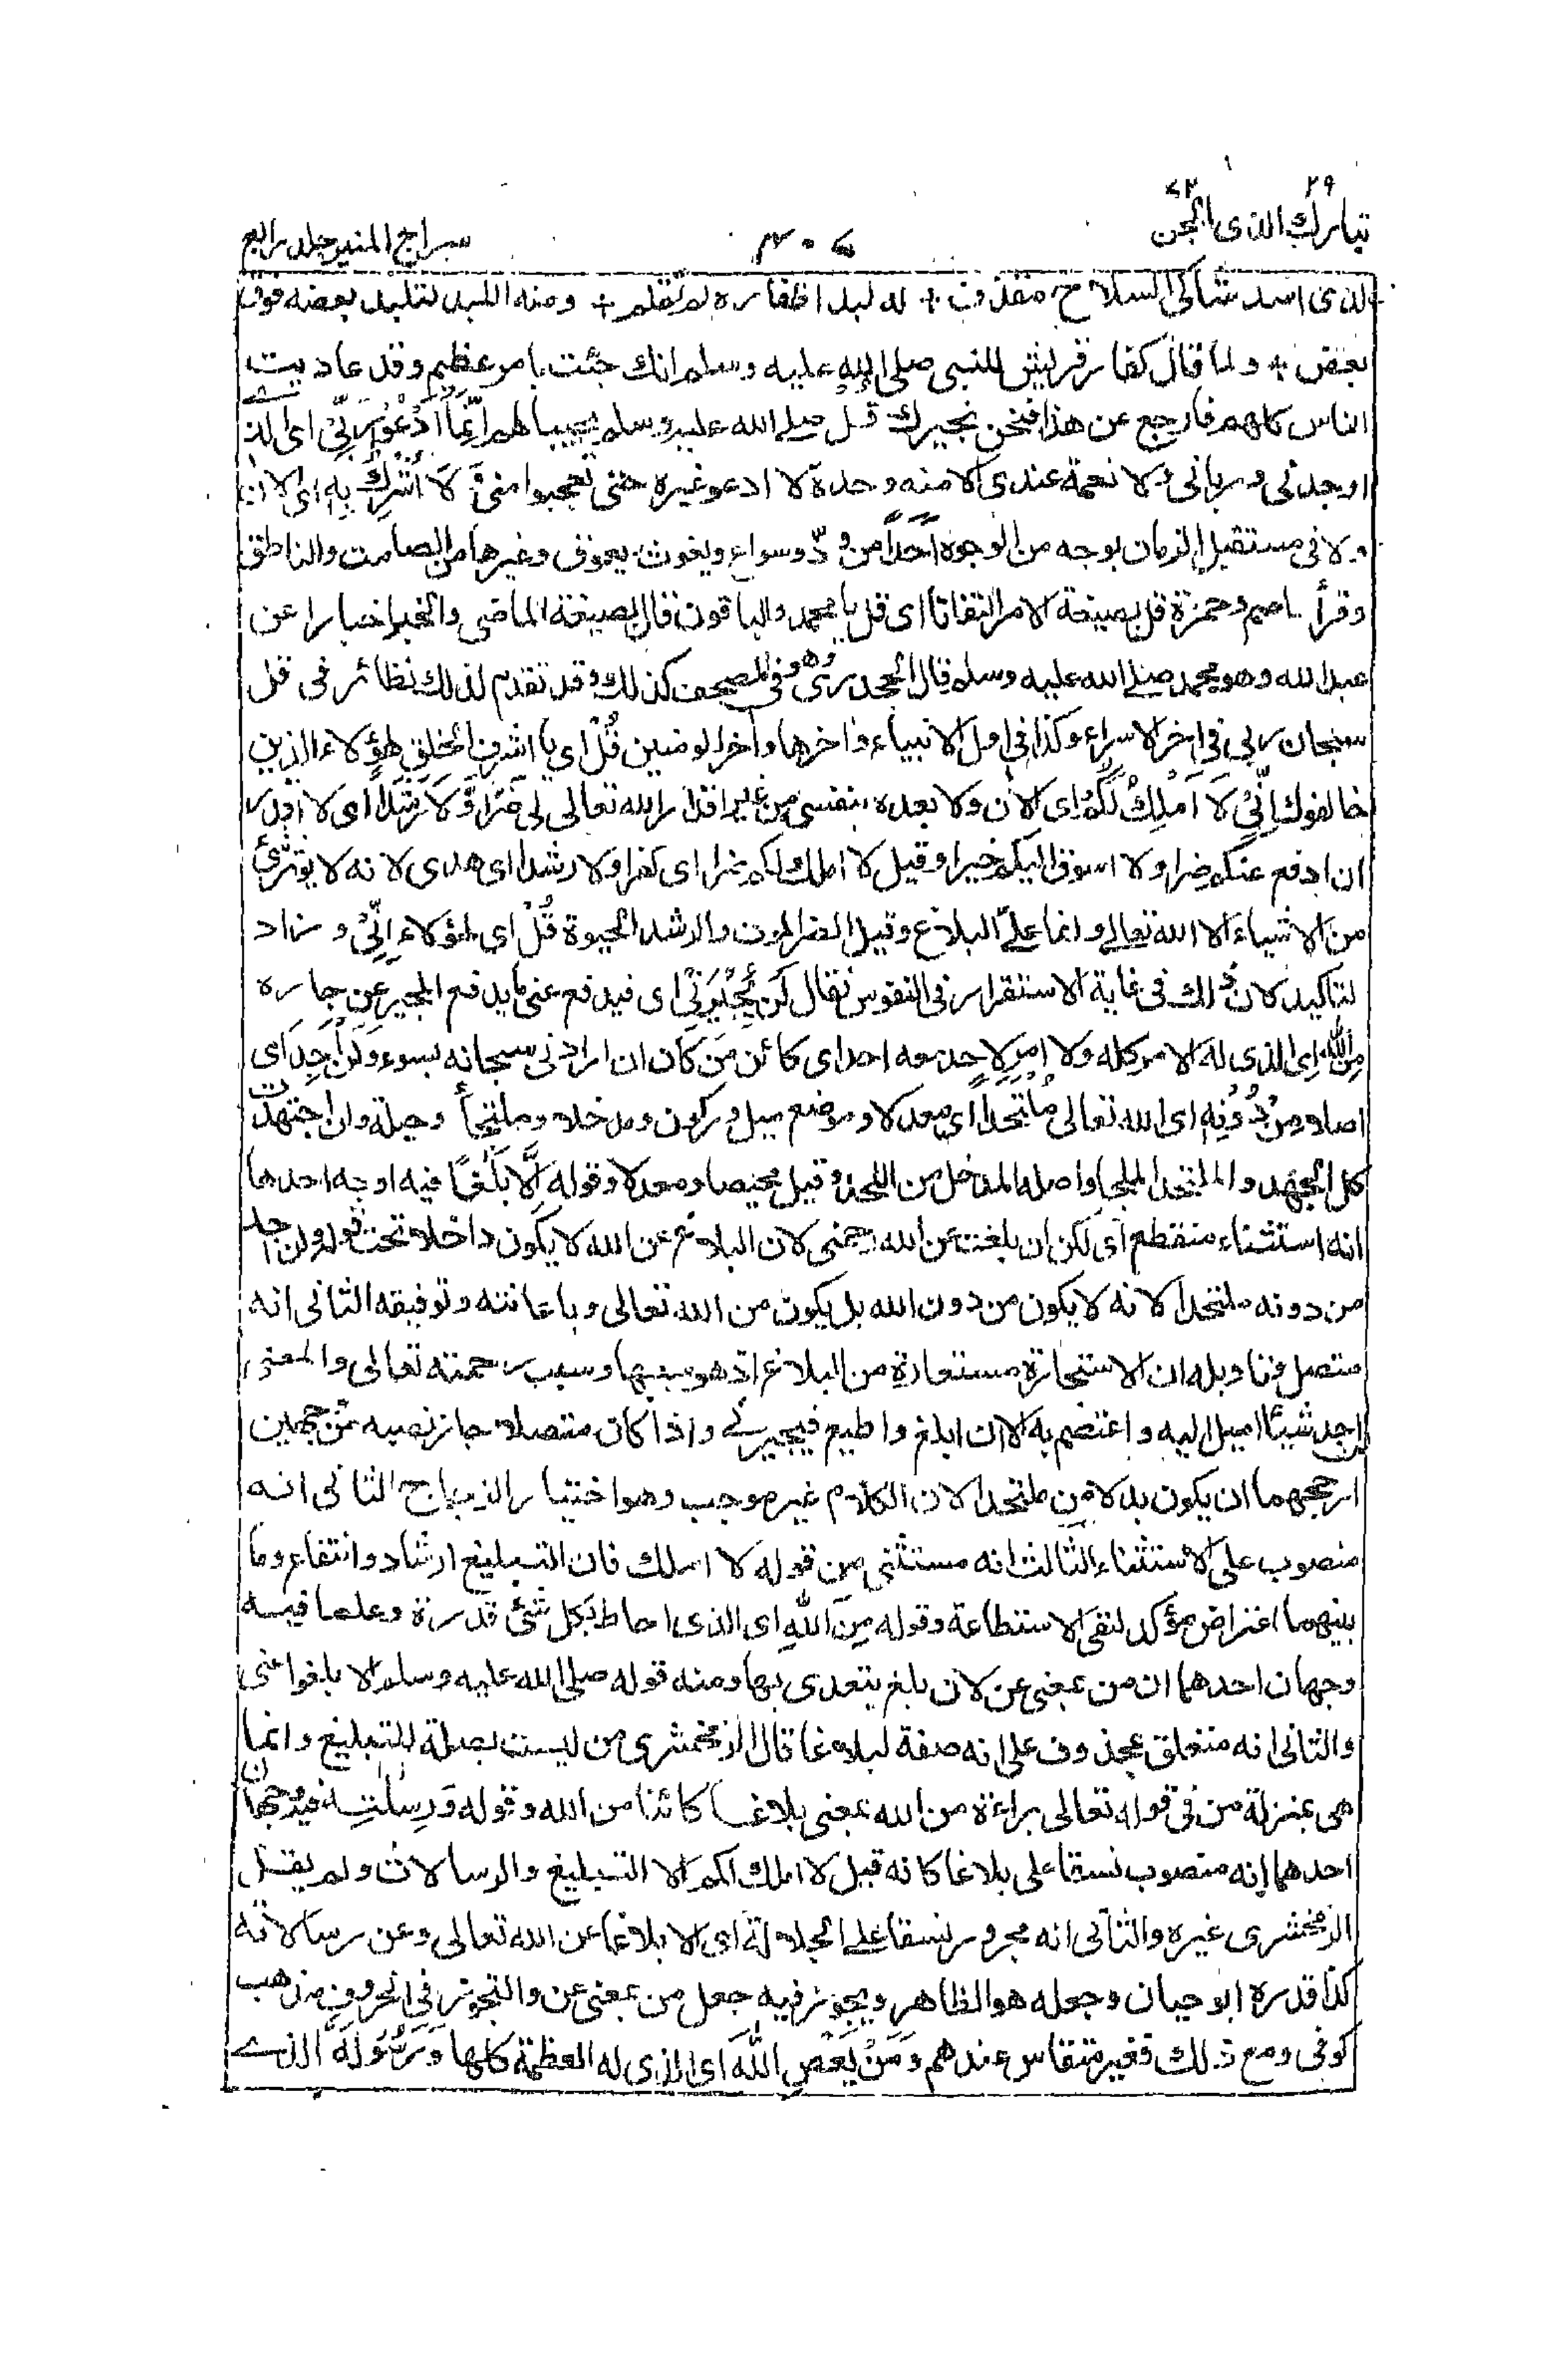 ٢٩ ٧٢
تبارك الذى الجن
٤٠٧
سراج المنير جلد رابع
لدى اسد شاكى السلاح مقذف + له لبد اظفاره لم تقلم + ومنه اللبد لتلبد بعضه فوق
بعض + ولما قال كفار قريش للنبى صلى الله عليه وسلم انك جئت بامر عظيم وقد عاديت
الناس كلهم فارجع عن هذا فنحن نجيرك قل صلے الله عليه وسلم مجيبا لهم اِنَّمَا اَدْعُوْ رَبِّىْ اى الذے
اوجدنى وربانى ولا نعمة عندى الا منه وحده لا ادعو غيره حتى تعجبوا منى وَ لَا اُشْرِكُ بِهٖ اى الان
ولا فى مستقبل الزمان بوجه من الوجوه اَحَدًا من ودّ وسواع ويغوث يعوق وغيرها من الصامت والناطق
وقرأ عاصم وحمزة قل بصيغة الامر التفاتا اى قل يا محمد والباقون قال بصيغة الماضى والخبر اخبارا عن
عبد الله وهو محمد صلے الله عليه وسلم قال الجحدرى وهو فى المصحف كذلك وقد تقدم لذلك نظائر فى قل
سبحان ربى فى اخر الاسراء وكذا فى اول الانبياء واخرها واخر المومنين قُلْ اى يا اشرف الخلق لهؤلاء الذين
خالفوك اِنِّىْ لَا اَمْلِكُ لَكُمْ اى الان ولا بعده بنفسى من غير اقدار الله تعالى لى ضَرًّا وَّ لَا رَشَدًا اى لا اقدر
ان ادفع عنكم ضرا ولا اسوق اليكم خيرا وقيل لا املك لكم ضرا اى كفرا ولا رشدا اى هدى لانه لا يؤثر شئ
من الاشياء الا الله تعالے وانما علىّ البلاغ وقيل الضر الموت والرشد الحيوة قُلْ اى لهؤلاء اِنِّىْ وزاد
لتاكيد لان ذلك فى غاية الاستقرار فى النفوس فقال لَنْ يُّجِيْرَنِىْ اى فيدفع عنى ما يدفع المجير عن جاره
مِنَ اللهِ اى الذى له الامر كله ولا امر لاحد معه احد اى كائن من كان ان ارادنى سبحانه بسوء وَ لَنْ اَجِدَ اى
اصلا مِنْ دُوْنِهٖ اى الله تعالى مُلْتَحَدًا اى معدلا وموضع ميل وركون ومدخلا وملتجأ وحيلة وان اجتهدت
كل الجهد والملتحد الملجا واصله المدخل من اللحد وقيل محيصا ومعدلا وقوله اِلَّا بَلٰغًا فيه اوجه احدها
انه استثناء منقطع اى لكن ان بلغت عن الله رحمنى لان البلاغ عن الله لا يكون داخلا تحت قوله ولن اجد
من دونه ملتحدا لانه لا يكون من دون الله بل يكون من الله تعالى وباعانته وتوفيقه الثانى انه
متصل وتاويله ان الاستجارة مستعارة من البلاغ اذ هو سببها وسبب رحمته تعالى والمعنى
لن اجد شيئا اميل اليه واعتضم به الا ان ابلغ واطيع فيجيرنے واذا كان متصلا جاز نصبه من وجهين
ارجحهما ان يكون بدلا من ملتحدا لان الكلام غير موجب وهو اختيار الزجاج الثانى انه
منصوب على الاستثناء الثالث انه مستثنى من قوله لا املك فان التبليغ ارشاد وانتفاع وما
بينهما اعتراض مؤكد لنفى الاستطاعة وقوله مِنَ اللهِ اى الذى احاط بكل شئ قدرة وعلما فيه
وجهان احدهما ان من بمعنى عن لان بلغ يتعدى بها ومنه قوله صلى الله عليه وسلم الا بلغوا عنى
والثانى انه متعلق بمحذوف على انه صفة لبلاغا قال الزمخشرى من ليست بصلة للتبليغ وانما
هى بمنزلة من فى قوله تعالى براءة من الله بمعنى بلاغا كائنا من الله وقوله وَ رِسٰلٰتِهٖ فيه وجهان
احدهما انه منصوب نسقا على بلاغا كانه قيل لا املك لكم الا التبليغ والرسالات ولم يقل
الزمخشرى غيره والثانى انه مجرور نسقا على الجلالة اى الا بلاغا عن الله تعالى وعن رسالاته
كذا قدره ابو حيان وجعله هو الظاهر ويجوز فيه جعل من بمعنى عن والتجوز فى الحروف مذهب
كوفى ومع ذلك فغير منقاس عندهم وَ مَنْ يَّعْصِ اللهَ اى الذى له العظمة كلها وَ رَسُوْلَهٗ الذے